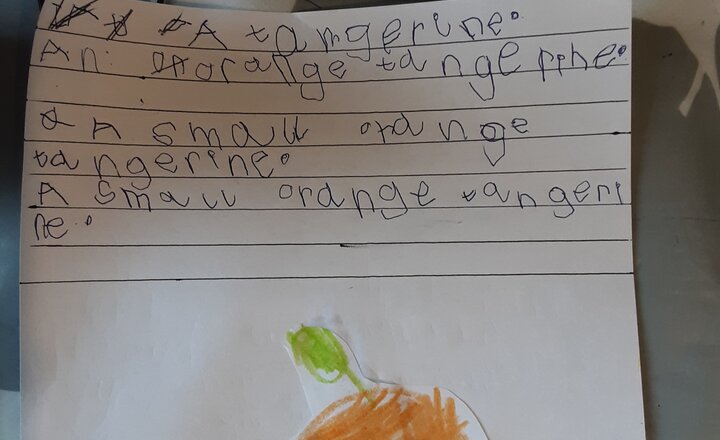 A tangerine.
An orange tangerine.
A small orange
tangerine.
A small orange tangeri
ne.